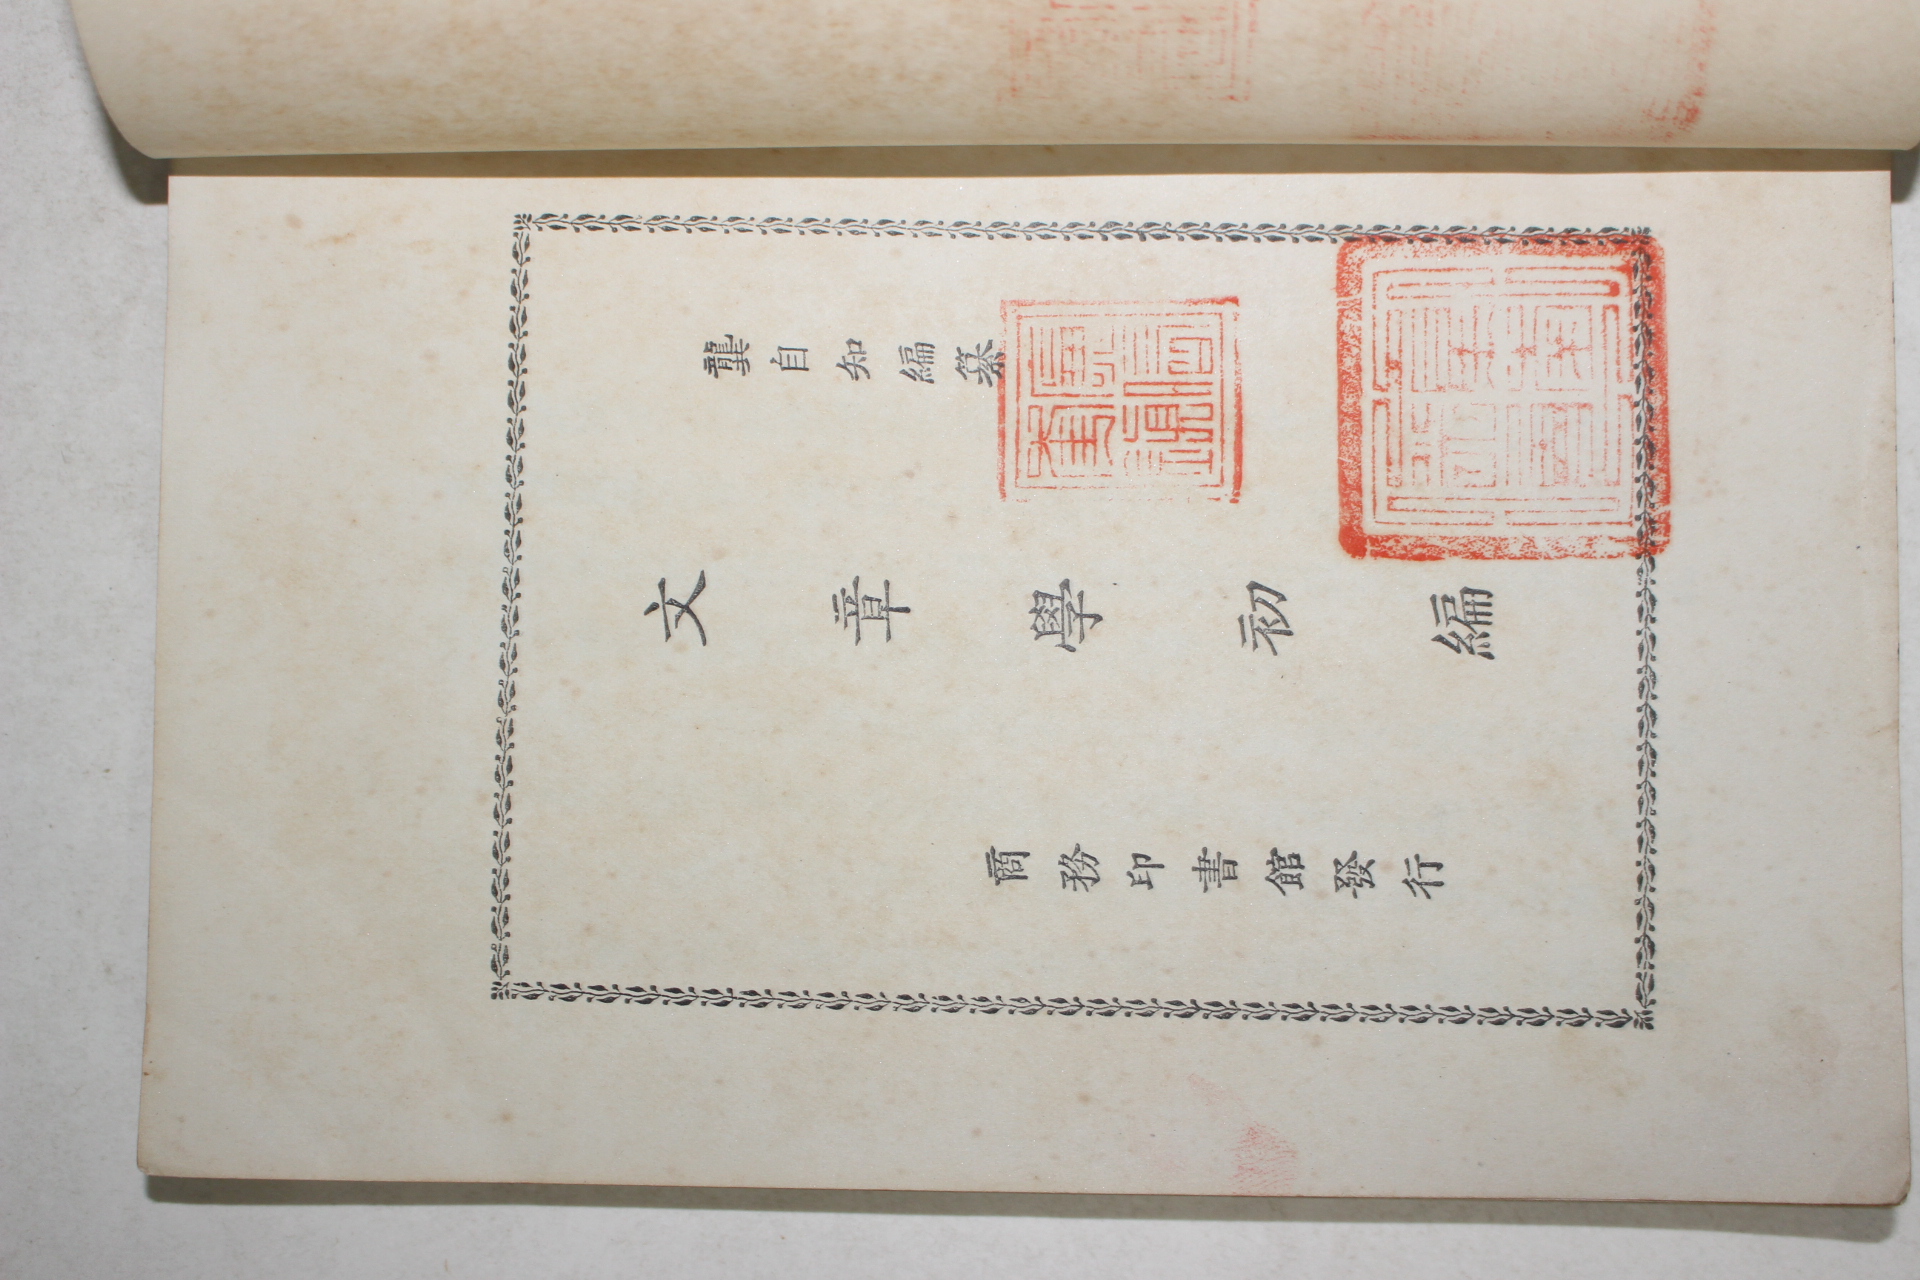 龔自知編纂
文章學初編
商務印書館發行